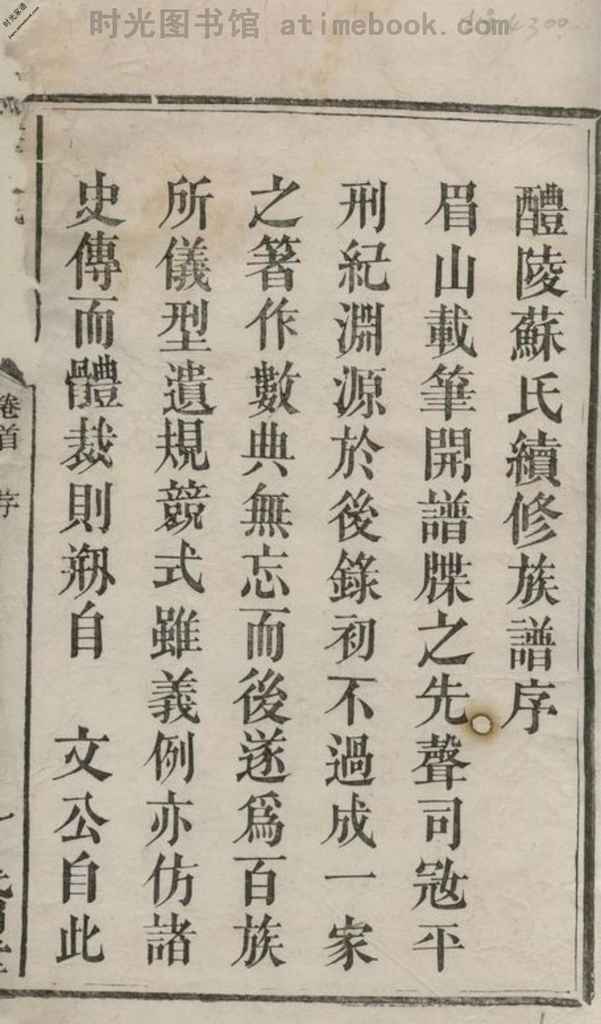 时光图书馆 atimebook.com
醴陵蘇氏續修族譜序
眉山載筆開譜牒之先聲司㓂平
刑紀淵源於後錄初不過成一家
之著作數典無忘而後遂爲百族
所儀型遺規競式雖義例亦仿諸
史傳而體裁則剏自 文公自此
卷首 序